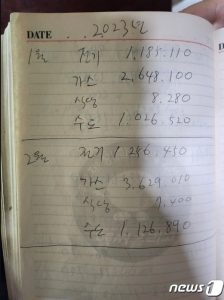 DATE . . 2023년
1월 전기 1,185.110
가스 2,648.100
식당 8.280
수도 1,026.520
2월 전기 1.286.450
가스 3.629.010
식당
수도 1.126.890
news1